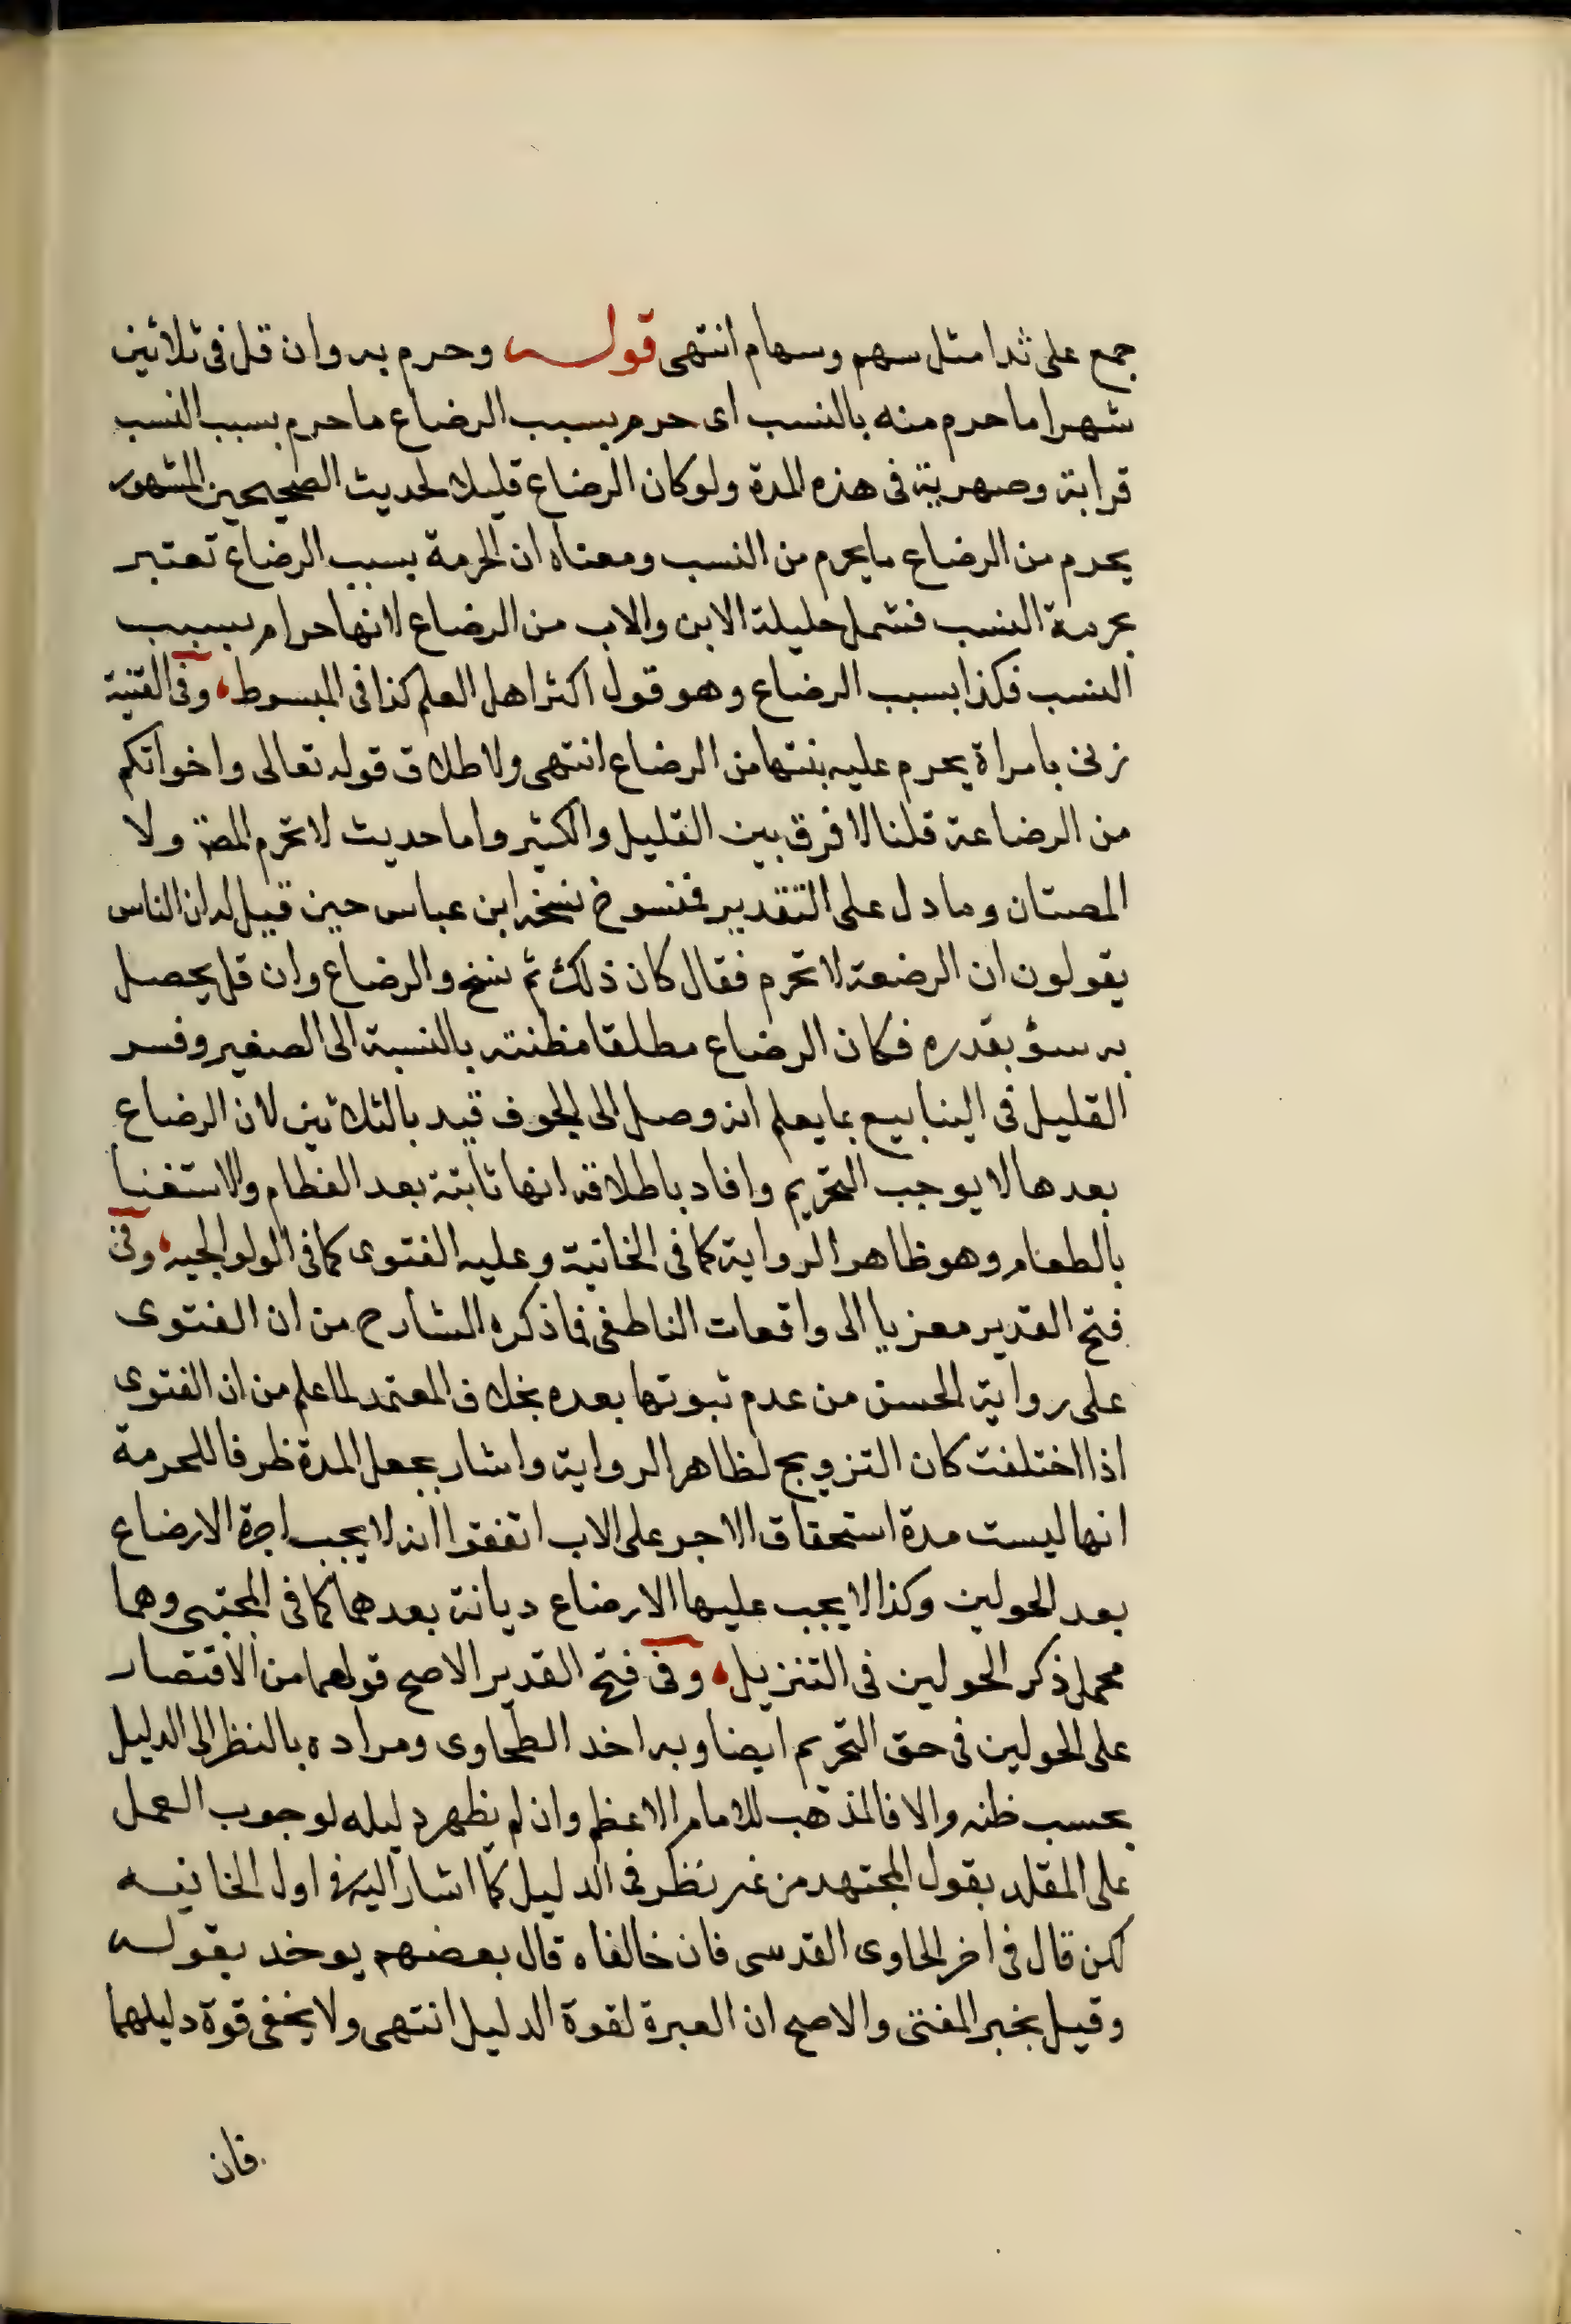 جمع على ثدا مثل سهم وسهام انتهى قوله وحرم به وان قل فى ثلاثين
شهرا ما حرم منه بالنسب اى حرم بسبب الرضاع ما حرم بسبب النسب
قرابة وصهرية فى هذه المدة ولو كان الرضاع قليلا لحديث الصحيحين المشهور
يحرم من الرضاع ما يحرم من النسب ومعناه ان الحرمة بسبب الرضاع تعتبر
بحرمة النسب فشمل حليلة الابن والاب من الرضاع لانها حرام بسبب
النسب فكذا بسبب الرضاع وهو قول اكثر اهل العلم كذا فى المبسوط وفى القنية
زنى بامراة يحرم عليه بنتها من الرضاع انتهى ولاطلاق قوله تعالى واخواتكم
من الرضاعة قلنا لا فرق بين القليل والكثير واما حديث لا تحرم المصة ولا
المصتان وما دل على التقدير فمنسوخ نسخه ابن عباس حين قيل له ان الناس
يقولون ان الرضعة لا تحرم فقال كان ذلك ثم نسخ والرضاع وان قل يحصل
به نشؤ بقدره فكان الرضاع مطلقا مظنته بالنسبة الى الصغير وفسر
القليل فى الينابيع بما يعلم انه وصل الى الجوف قيد بالثلاثين لان الرضاع
بعدها لا يوجب التحريم وافاد باطلاقه انها ثابتة بعد الفطام والاستغنا
بالطعام وهو ظاهر الرواية كما فى الخانية وعليه الفتوى كما فى الولوالجيه وفى
فتح القدير معزيا الى واقعات الناطفى فما ذكره الشارح من ان الفتوى
على رواية الحسن من عدم ثبوتها بعده بخلاف المعتمد لما علم من ان الفتوى
اذا اختلفت كان الترويج لظاهر الرواية واشار بجعل المدة ظرفا للحرمة
انها ليست مدة استحقاق الاجر على الاب اتفقوا انه لا يجب اجرة الارضاع
بعد الحولين وكذا لا يجب عليها الارضاع ديانة بعدها كما فى المجتبى وهما
محمل ذكر الحولين فى التنزيل وفى فتح القدير الاصح قولهما من الاقتصار
على الحولين فى حق التحريم ايضا وبه اخد الطحاوى ومراده بالنظر الى الدليل
بحسب ظنه والا فالمذهب للامام الاعظم وان لم يظهر دليله لوجوب العمل
على المقلد بقول المجتهد من غير نظر فى الدليل كما اشار اليه فى اول الخانيه
لكن قال فى اخر الحاوى القدسى فان خالفاه قال بعضهم يوخد بقوله
وقيل يخير المفتى والاصح ان العبرة لقوة الدليل انتهى ولا يخفى قوة دليلهما
فان